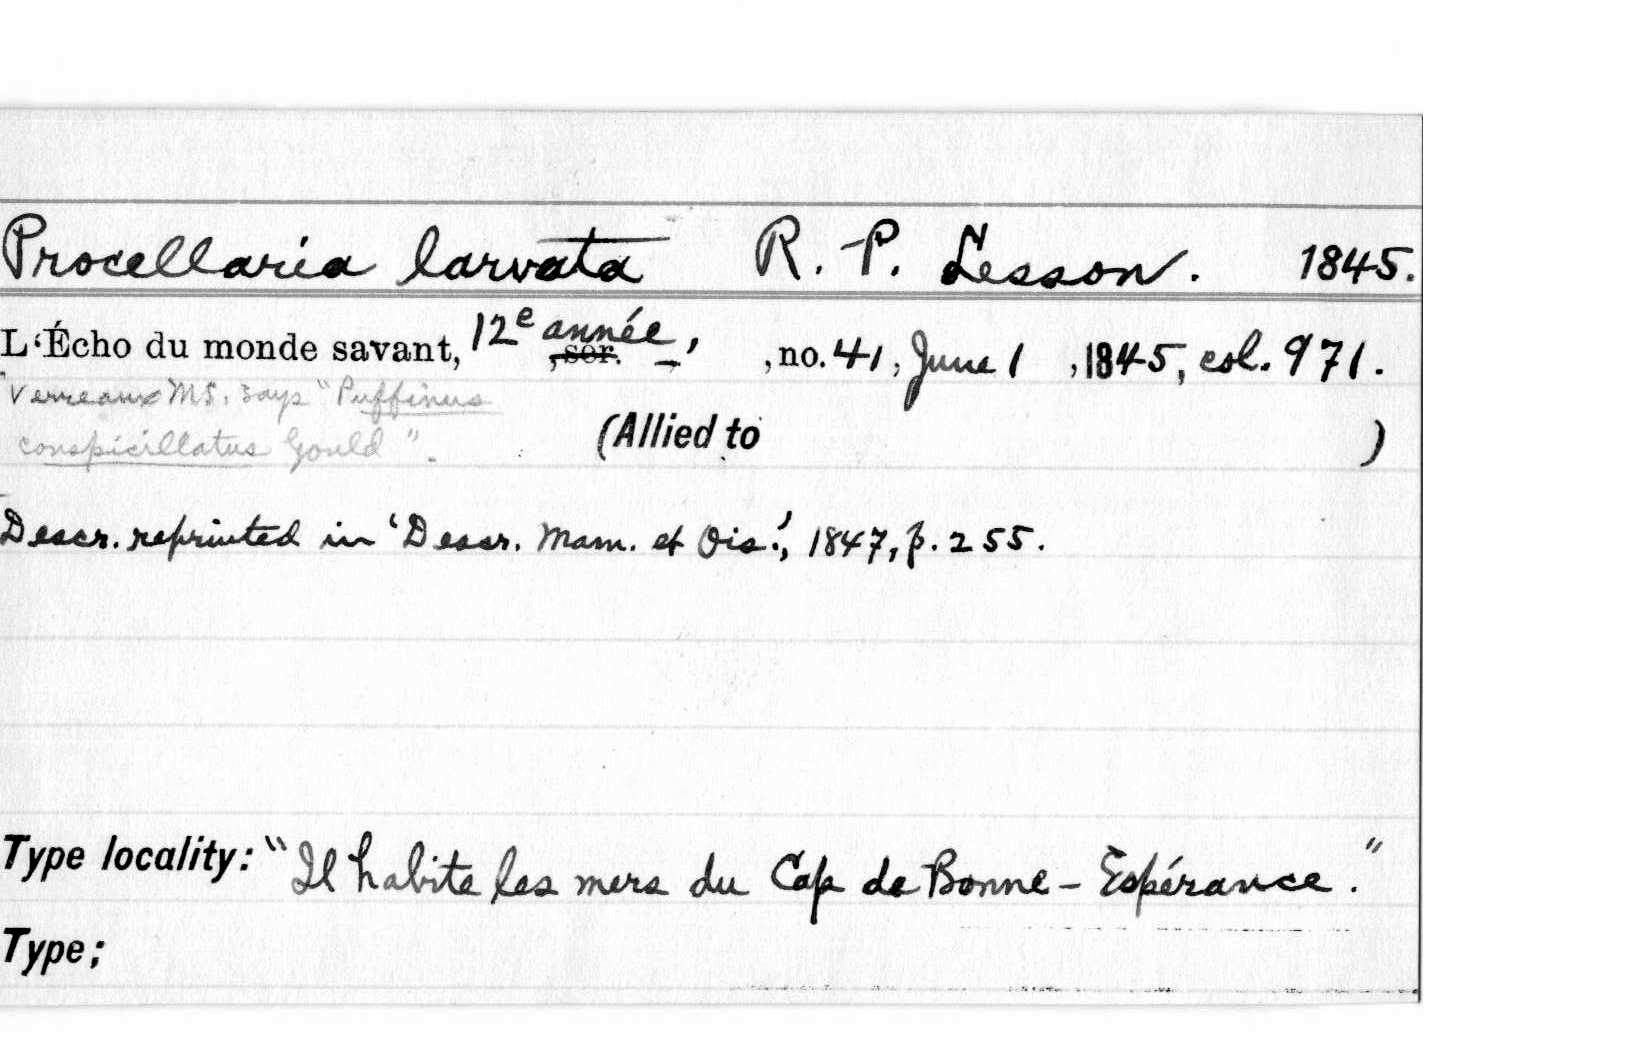 Procellaria larvata R. P. Lesson. 1845.
L'Écho du monde savant, 12e année, ser. , no. 41, June 1, 1845, col. 971.
Verreaux MS. says "Puffinus
conspicillatus Gould".
(Allied to )
Descr. reprinted in 'Descr. Mam. et Ois.', 1847, p. 255.
Type locality: "Il habite les mers du Cap de Bonne-Espérance."
Type;